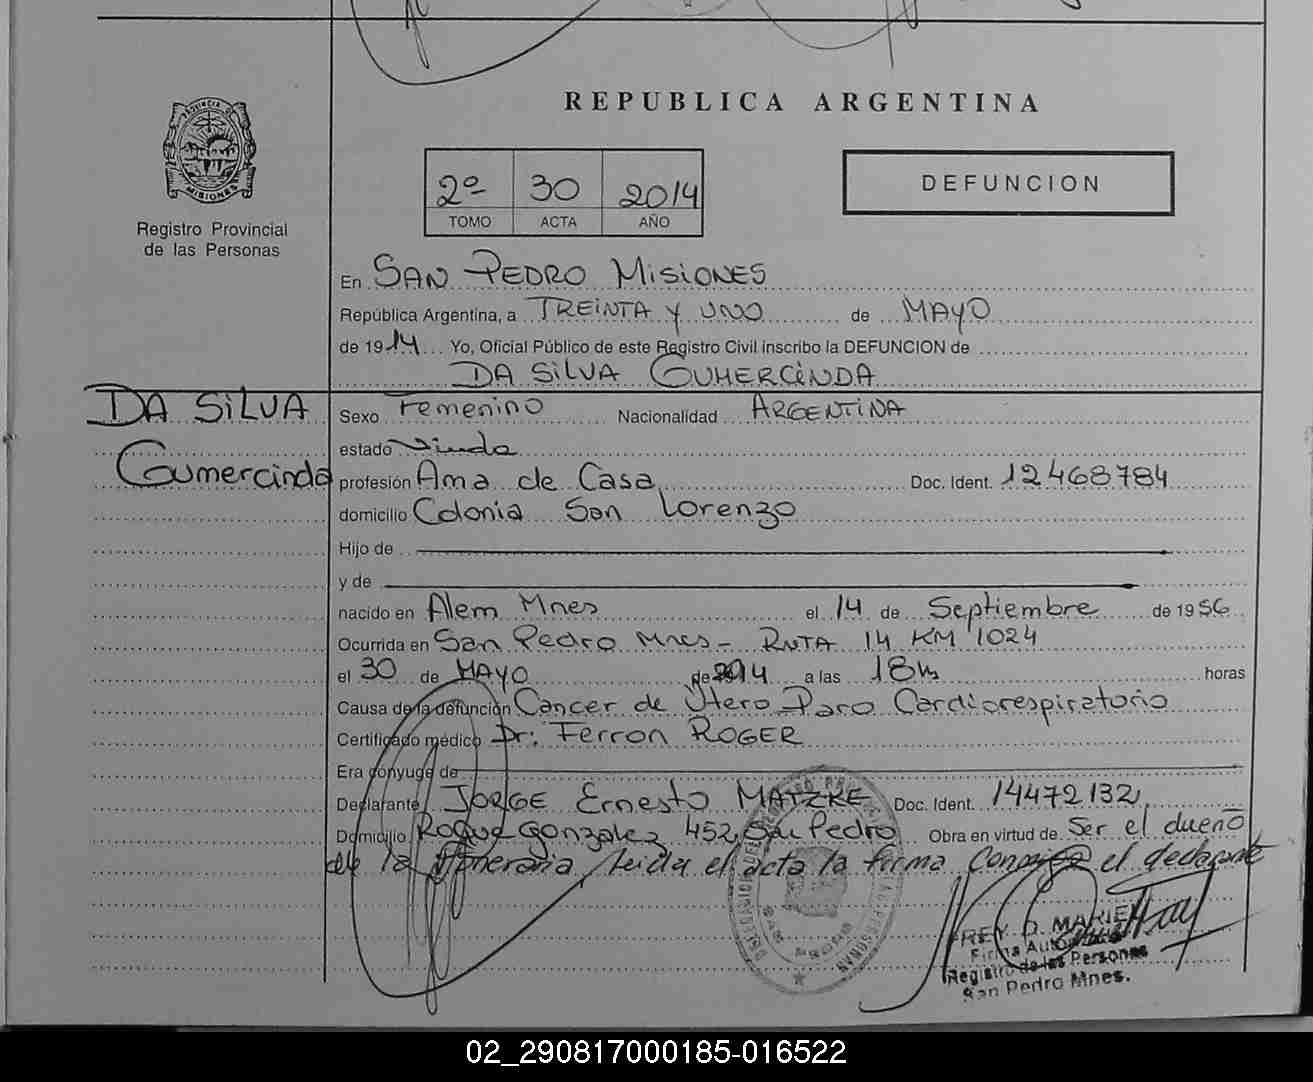 REPUBLICA ARGENTINA
PROVINCIA DE
MISIONES
Registro Provincial
de las Personas
2º 30 2014
TOMO ACTA AÑO
DEFUNCION
En SAN PEDRO MISIONES
República Argentina, a TREINTA Y UNO de MAYO
de 1914 Yo, Oficial Público de este Registro Civil inscribo la DEFUNCION de
DA SILVA GUMERCINDA
DA SILVA
Gumercinda
Sexo Femenino Nacionalidad ARGENTINA
estado Viuda
profesión Ama de Casa Doc. Ident. 12468784
domicilio Colonia San Lorenzo
Hijo de
y de
nacido en Alem Mnes el 14 de Septiembre de 1956
Ocurrida en San Pedro Mnes - RUTA 14 KM 1024
el 30 de MAYO de 2014 a las 18hs horas
Causa de la defunción Cancer de Utero Paro Cardiorespiratorio
Certificado médico Dr: Ferron ROGER
Era cónyuge de
Declarante JORGE Ernesto MATZKE Doc. Ident. 14472132
Domicilio Roque Gonzalez 452, San Pedro Obra en virtud de Ser el dueño
de la funeraria, leida el acta la firma el declarante
SAN PEDRO
FREY D. MARIE
Firma Autorizada
Registro de las Personas
San Pedro Mnes.
02_290817000185-016522